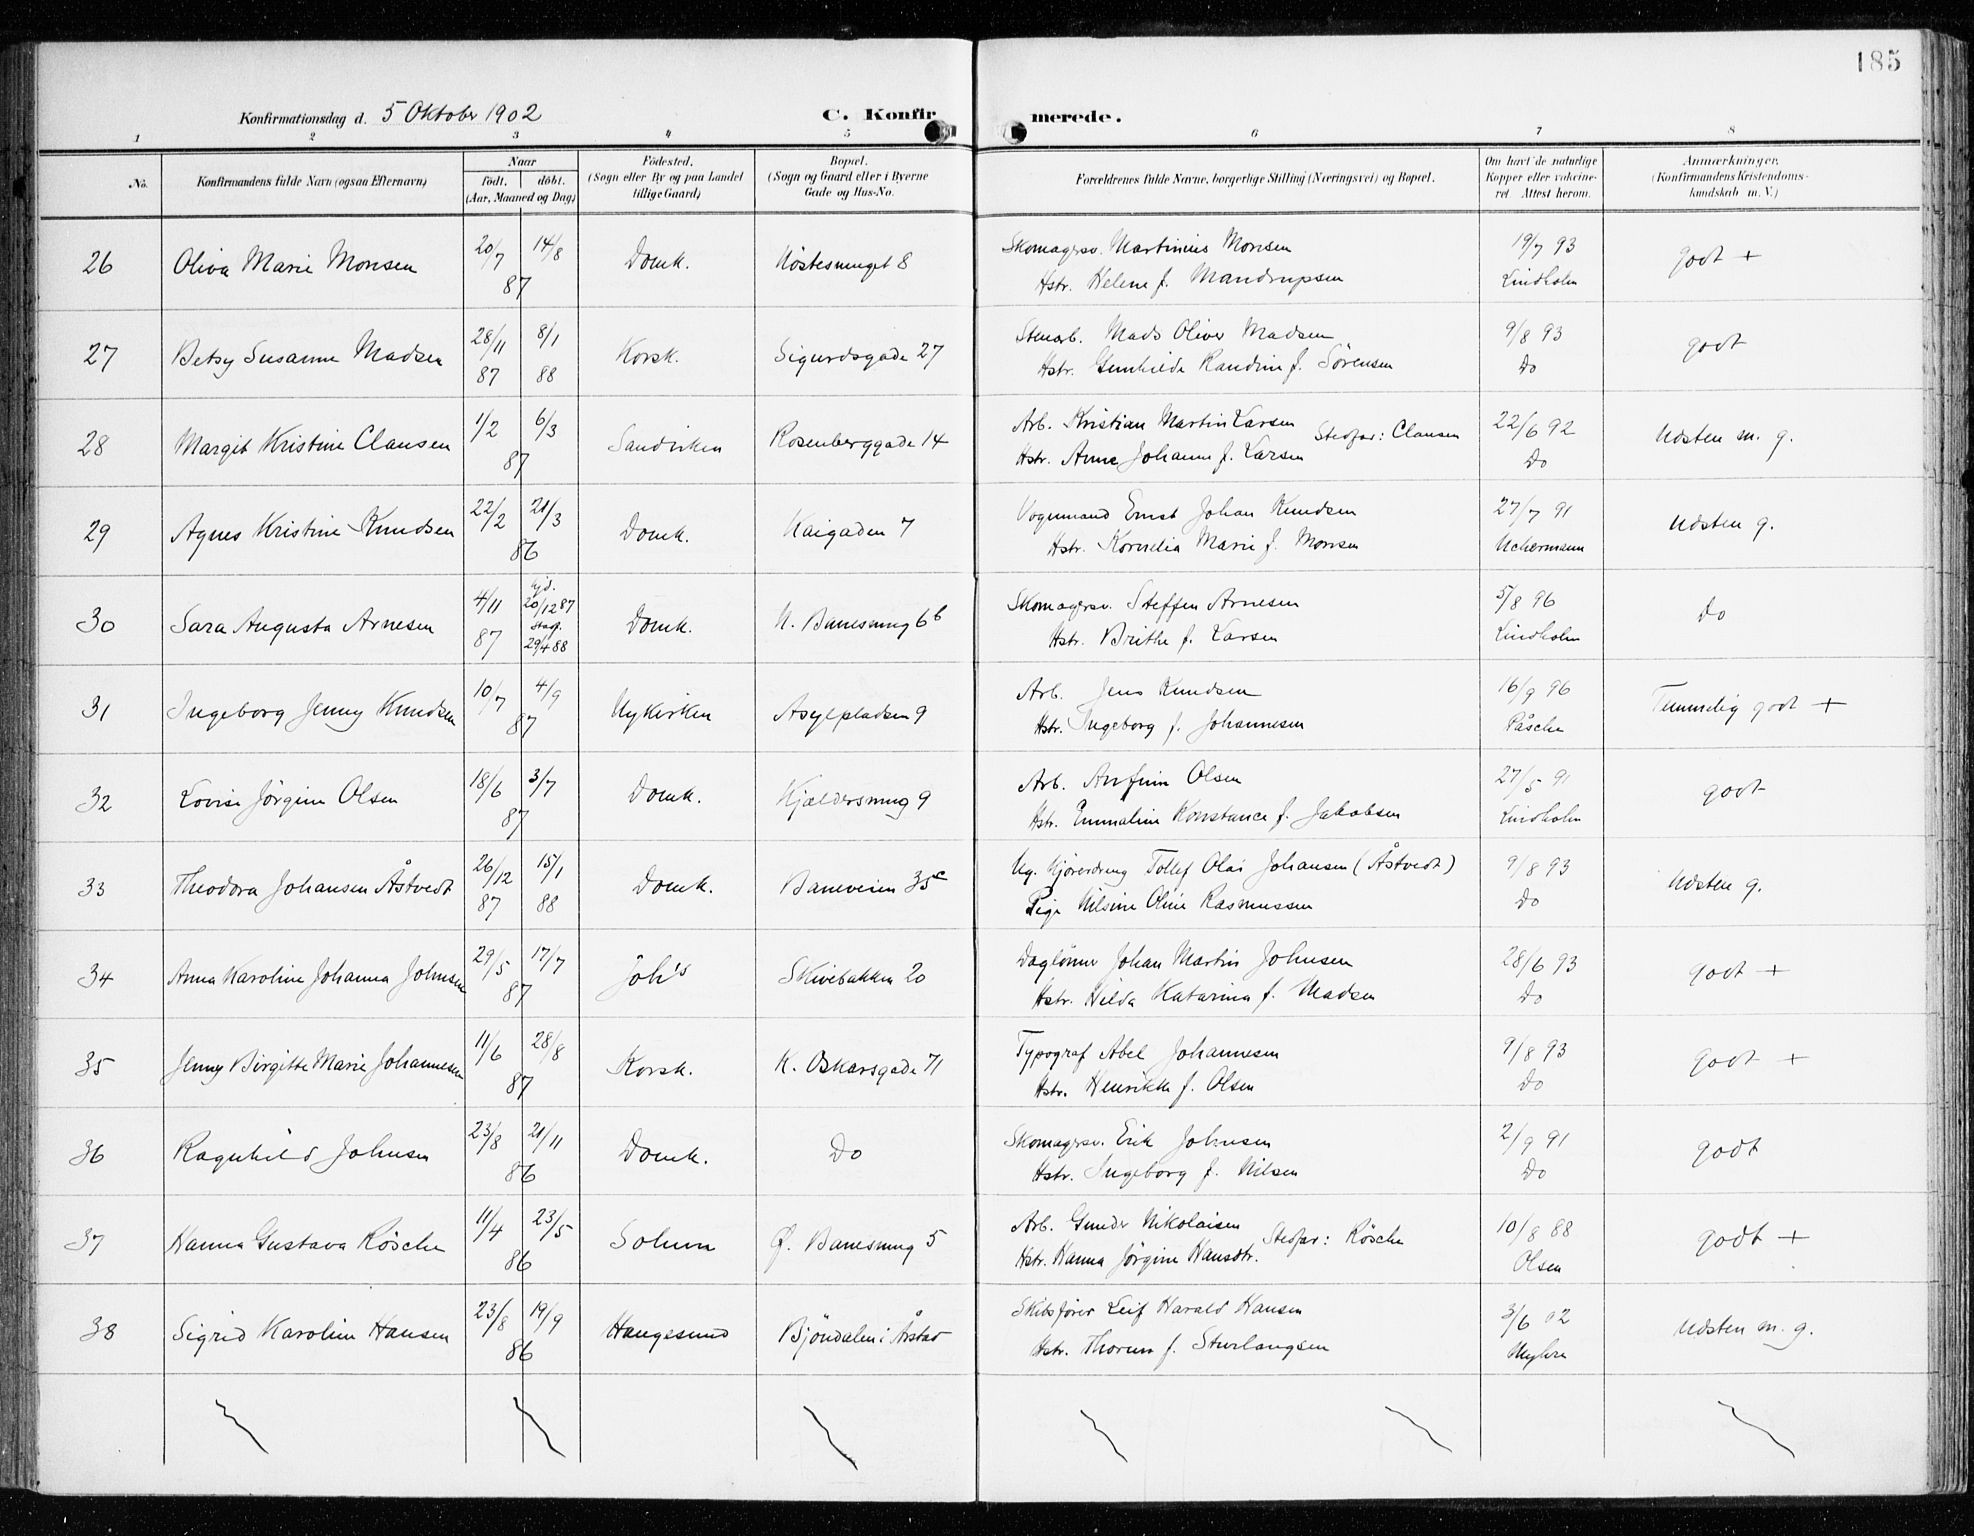 185
Konfirmationsdag d. 5 Oktober 1902
C. Konfir merede.
1 2 3 4 5 6 7 8
No.
Konfirmandens fulde Navn (ogsaa Efternavn)
Naar
födt. döbt.
(Aar, Maaned og Dag)
Födested.
(Sogn eller By og paa Landet
tillige Gaard)
Bopæl.
(Sogn og Gaard eller i Byerne
Gade og Hus-No.
Forældrenes fulde Navne, borgerlige Stilling (Næringsvei) og Bopæl.
Om havt de naturlige
Kopper eller vakcine-
ret. Attest herom.
Anmærkninger.
(Konfirmandens Kristendoms-
kundskab m. V.)
26 Oliva Marie Monsen 20/7 14/8 87 Domk. Nöstesmuget 8 Skomagersv. Martinius Monsen 19/7 93 godt +
Hstr. Helene f. Mandrupsen Lindholm
27 Betsy Susanne Madsen 28/11 87 8/1 88 Korsk. Sigurdsgade 27 Stenarb. Mads Oliver Madsen 9/8 93 godt
Hstr. Gunhilde Randine f. Sörensen Do
28 Margit Kristine Clausen 1/2 6/3 87 Sandviken Rosenberggade 14 Arb. Kristian Martin Larsen Stedfar: Clausen 22/6 92 Udsten m. g.
Hstr. Anne Johanne f. Larsen Do
29 Agnes Kristine Knudsen 22/2 21/3 86 Domk. Kaigaden 7 Vognmand Ernst Johan Knudsen 27/7 91 Udsten g.
Hstr. Kornelia Marie f. Monsen Uchermann
30 Sara Augusta Arnesen 4/11 87 hjd. 20/12 87 Stadf. 29/4 88 Domk. N. Banesmug 6b Skomagersv. Steffen Arnesen 5/8 96 Do
Hstr. Brithe f. Larsen Lindholm
31 Ingeborg Jenny Knudsen 10/7 4/9 87 Nykirken Asylpladsen 9 Arb. Jens Knudsen 16/9 96 Temmelig godt +
Hstr. Ingeborg f. Johannesen Påsche
32 Lovise Jörgine Olsen 18/6 3/7 87 Domk. Kjældersmug 9 Arb. Anfinn Olsen 27/5 91 godt
Hstr. Emmaline Konstance f. Jakobsen Lindholm
33 Theodora Johansen Åstvedt 26/12 87 15/1 88 Domk. Baneveien 35c Ug. Kjöredreng Tollef Olai Johansen (Åstvedt) 9/8 93 Udsten g.
Pige Nilsine Oline Rasmussen Do
34 Anna Karoline Johanna Johnsen 29/5 17/7 87 Joh's Skivebakken 20 Daglönner Johan Martin Johnsen 28/6 93 godt +
Hstr. Hilda Katarina f. Madsen Do
35 Jenny Birgitte Marie Johannesen 11/6 28/8 87 Korsk. K. Oskarsgade 71 Typograf Abel Johannesen 9/8 93 godt +
Hstr. Henrikke f. Olsen Do
36 Ragnhild Johnsen 23/8 21/11 86 Domk. Do Skomagersv. Erik Johnsen 2/9 91 godt
Hstr. Ingeborg f. Nilsen Do
37 Hanna Gustava Rösche 11/4 23/5 86 Solum Ø. Banesmug 5 Arb. Gunder Nikolaisen Stedfar: Rösche 10/8 88 godt +
Hstr. Hanna Jörgine Hansdtr. Olsen
38 Sigrid Karoline Hansen 23/8 19/9 86 Haugesund Bjöndalen i Årstad Skibsförer Leif Harald Hansen 3/6 02 Udsten m. g.
Hstr. Thorun f. Sturlaugsen Myhre